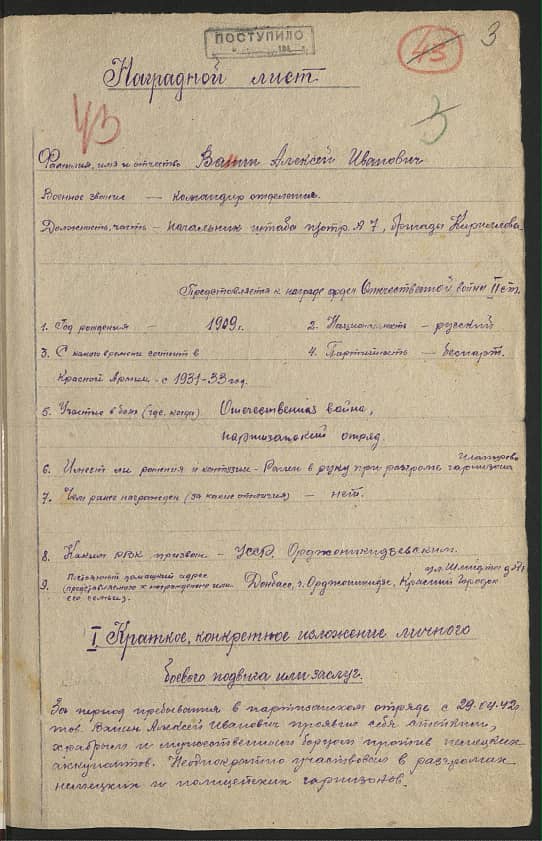 3
ПОСТУПИЛО
43
Наградной лист
43
3
Фамилия, имя и отчество Вашин Алексей Иванович
Военное звание — командир отделения.
Должность, часть — начальник штаба п/отр. № 7, бригады Кириллова
Представляется к награде орден Отечественной войны II ст.
1. Год рождения — 1909 г.
2. Национальность — русский
3. С какого времени состоит в
4. Партийность — беспарт.
Красной Армии - с 1931-33 год.
5. Участие в боях (где, когда) Отечественная война,
партизанский отряд.
6. Имеет ли ранения и контузии - Ранен в руку при разгроме гарнизона
7. Чем ранее награжден (за какие отличия) — нет.
8. Каким РВК призван - УССР, Орджоникидзевским.
9. Постоянный домашний адрес
(представляемого к награждению или
его семьи).
Донбасс, г. Орджоникидзе, Красный Городок
ул. Шмидта д.
I Краткое, конкретное изложение личного
боевого подвига или заслуг.
За период пребывания в партизанском отряде с 29.04.42г
тов. Вашин Алексей Иванович проявил себя стойким,
храбрым и мужественным борцом против немецких
оккупантов. Неоднократно участвовал в разгромах
немецких и полицейских гарнизонов.